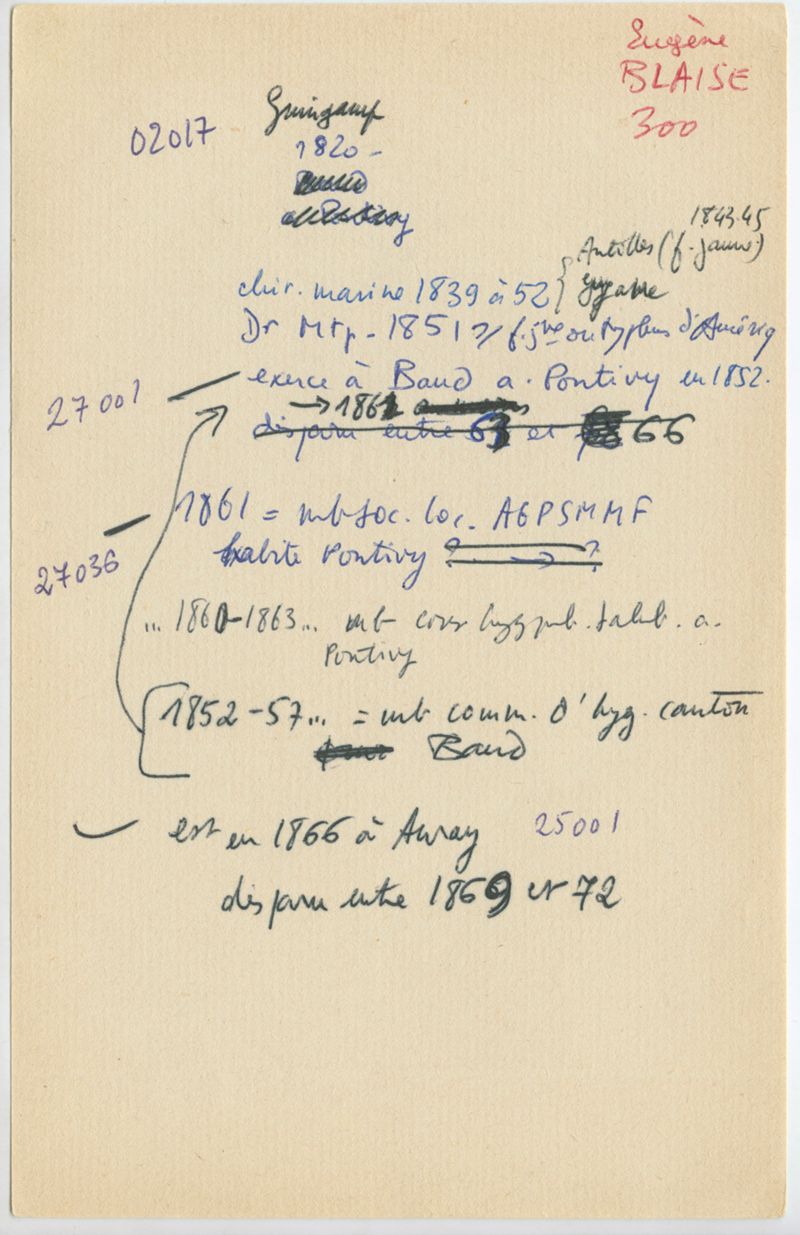 Eugène
BLAISE
300
02017
Guingamp
1820 -
1843.45
Antilles (f. jaune)
Guyane
chir. marine 1839 à 52
Dr Mtp - 1851 f. jne ou typhus d'Amériq
exerce à Baud a. Pontivy en 1852.
27001
→ 1862
disparu entre 63 et 66
1861 = mb soc. loc. AGPSMMF
27036
habite Pontivy ? → ?
... 1860-1863... mb cons hyg pub. salub. a.
Pontivy
1852-57... = mb comm. d'hyg. canton
Baud
est en 1866 à Auray 25001
disparu entre 1869 et 72